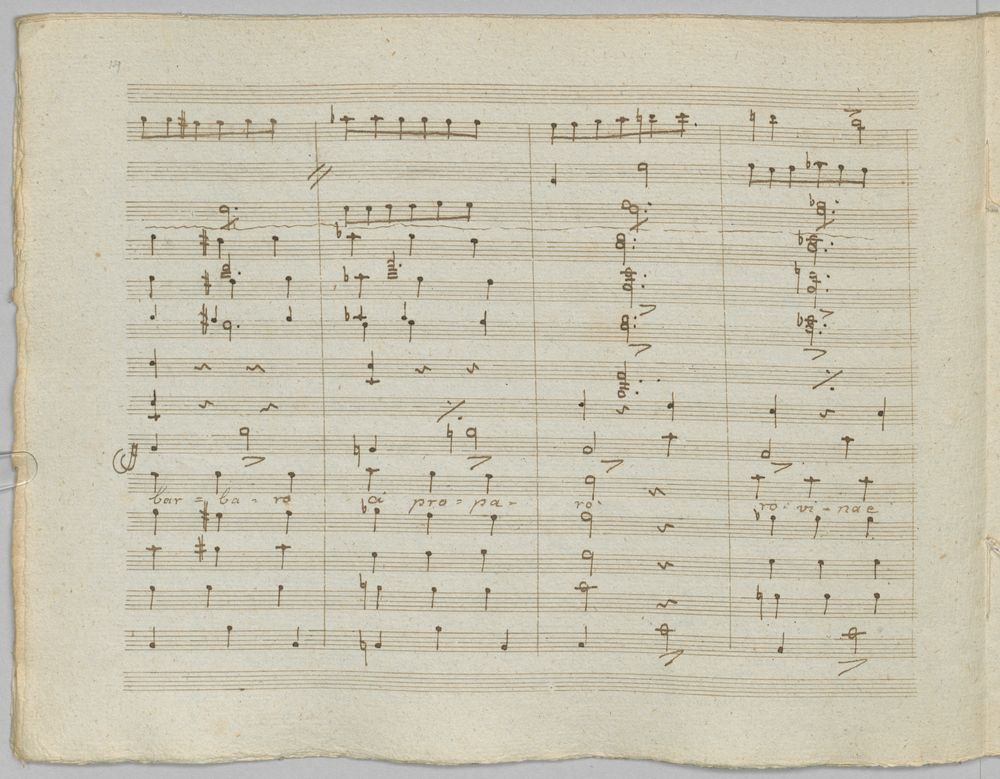 bar = ba - ro a pro = pa - rò ro - vi - nae